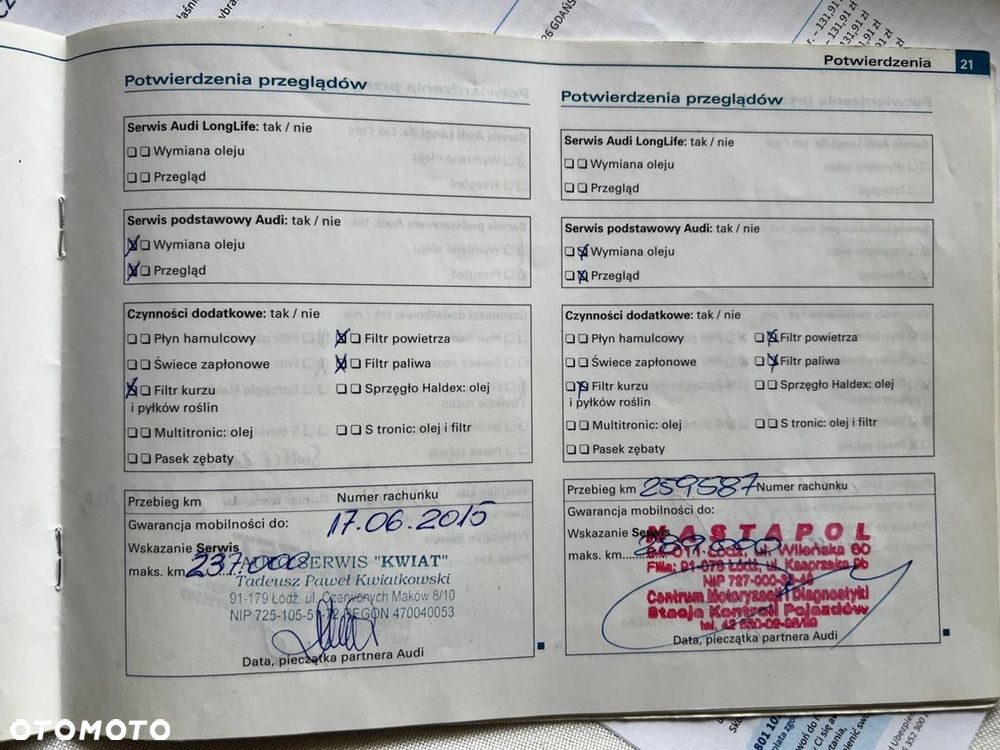 26 GDAŃS
– 131,91 zł
131,91 zł
Potwierdzenia 21
Potwierdzenia przeglądów
Serwis Audi LongLife: tak / nie
Wymiana oleju
Przegląd
Serwis podstawowy Audi: tak / nie
Wymiana oleju
Przegląd
Czynności dodatkowe: tak / nie
Płyn hamulcowy Filtr powietrza
Świece zapłonowe Filtr paliwa
Filtr kurzu Sprzęgło Haldex: olej
i pyłków roślin
Multitronic: olej S tronic: olej i filtr
Pasek zębaty
Przebieg km Numer rachunku
Gwarancja mobilności do: 17.06.2015
Wskazanie Serwis
maks. km 237.000
SERWIS "KWIAT"
Tadeusz Paweł Kwiatkowski
91-179 Łódź, ul. Czerwonych Maków 8/10
NIP 725-105-51-72 REGON 470040053
Data, pieczątka partnera Audi
Potwierdzenia przeglądów
Serwis Audi LongLife: tak / nie
Wymiana oleju
Przegląd
Serwis podstawowy Audi: tak / nie
Wymiana oleju
Przegląd
Czynności dodatkowe: tak / nie
Płyn hamulcowy Filtr powietrza
Świece zapłonowe Filtr paliwa
Filtr kurzu Sprzęgło Haldex: olej
i pyłków roślin
Multitronic: olej S tronic: olej i filtr
Pasek zębaty
Przebieg km 259587 Numer rachunku
Gwarancja mobilności do:
Wskazanie Serwis
maks. km
MASTAPOL
Łódź, ul. Wileńska 60
Filia: 91-078 Łódź, ul. Kasprzaka
NIP 727-000-
Centrum Motoryzacji i Diagnostyki
Stacja Kontroli Pojazdów
tel. 42
Data, pieczątka partnera Audi
OTOMOTO
801 10